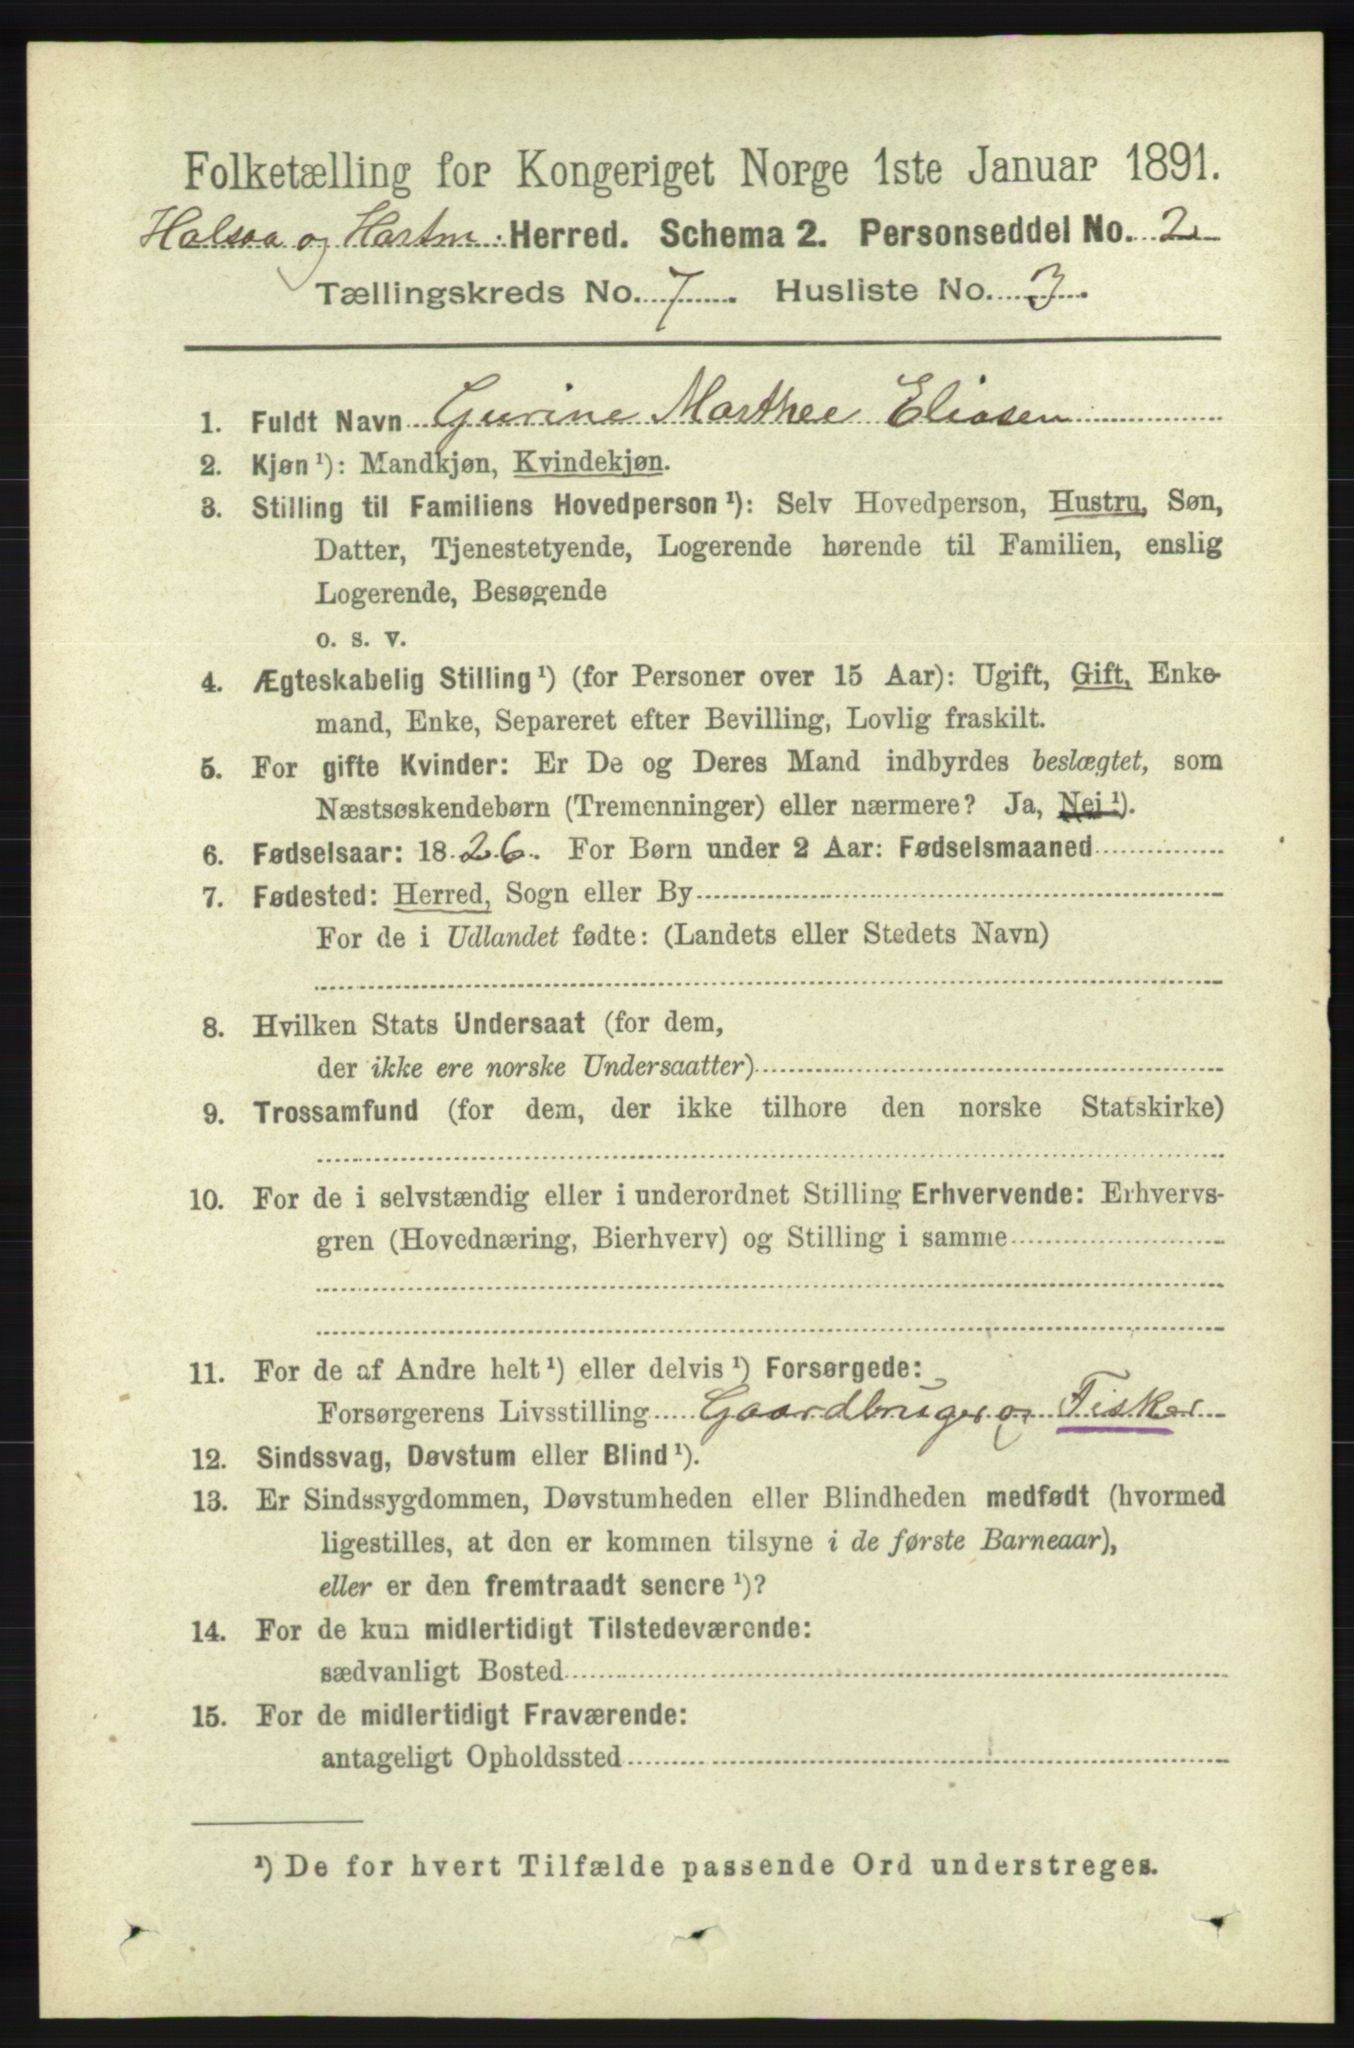 Folketælling for Kongeriget Norge 1ste Januar 1891.
Halsaa og Hartm: Herred. Schema 2. Personseddel No. 2
Tællingskreds No. 7. Husliste No. 3.
1. Fuldt Navn Gurine Marthee Eliasen
2. Kjøn¹): Mandkjøn, Kvindekjøn.
3. Stilling til Familiens Hovedperson¹): Selv Hovedperson, Hustru, Søn,
Datter, Tjenestetyende, Logerende hørende til Familien, enslig
Logerende, Besøgende
o. s. v.
4. Ægteskabelig Stilling¹) (for Personer over 15 Aar): Ugift, Gift, Enke-
mand, Enke, Separeret efter Bevilling, Lovlig fraskilt.
5. For gifte Kvinder: Er De og Deres Mand indbyrdes beslægtet, som
Næstsøskendebørn (Tremenninger) eller nærmere? Ja, Nei¹).
6. Fødselsaar: 1826. For Børn under 2 Aar: Fødselsmaaned
7. Fødested: Herred, Sogn eller By
For de i Udlandet fødte: (Landets eller Stedets Navn)
8. Hvilken Stats Undersaat (for dem,
der ikke ere norske Undersaatter)
9. Trossamfund (for dem, der ikke tilhore den norske Statskirke)
10. For de i selvstændig eller i underordnet Stilling Erhvervende: Erhvervs-
gren (Hovednæring, Bierhverv) og Stilling i samme
11. For de af Andre helt¹) eller delvis¹) Forsørgede:
Forsørgerens Livsstilling Gaardbruger og Fisker
12. Sindssvag, Døvstum eller Blind¹).
13. Er Sindssygdommen, Døvstumheden eller Blindheden medfødt (hvormed
ligestilles, at den er kommen tilsyne i de første Barneaar),
eller er den fremtraadt senere¹)?
14. For de kun midlertidigt Tilstedeværende:
sædvanligt Bosted
15. For de midlertidigt Fraværende:
antageligt Opholdssted
¹) De for hvert Tilfælde passende Ord understreges.